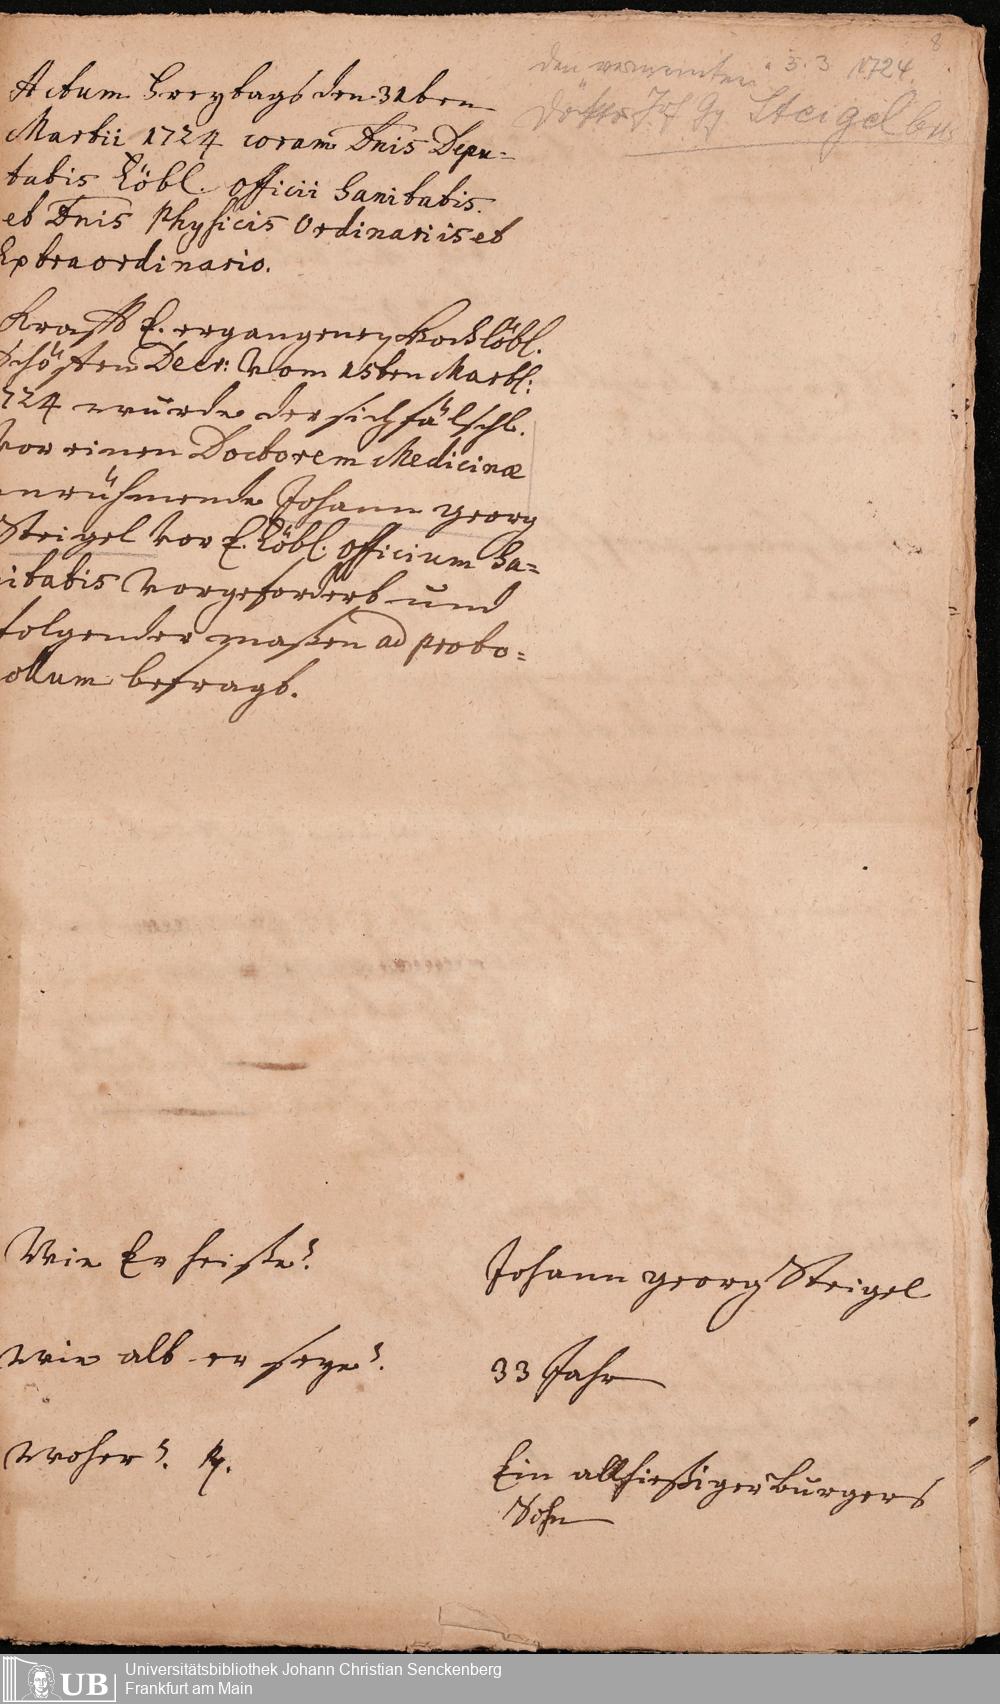 8
den vermeinten 3. 3 1724.
Steigel
Actum Freytags den 31ten
Martii 1724 coram Dnis Depu-
tatis Löbl. officii Sanitatis.
et Dnis Physicis Ordinariis et
Extraordinario.
Krafft E. ergangenen Hochlöbl.
Schöffen Decr: vom 15ten Martl:
724 wurde der sich fälschl.
vor einen Doctorem Medicinæ
anrühmende Johann georg
Steigel vor E. Löbl. officium Sa-
nitatis vorgefordert und
folgender maßen ad proto-
collum befragt.
Wie Er heiße?
Johann georg Steigel
wie alt er seye?
33 Jahr
Woher?
Ein allhießiger burgers
Sohn
UB Universitätsbibliothek Johann Christian Senckenberg
Frankfurt am Main